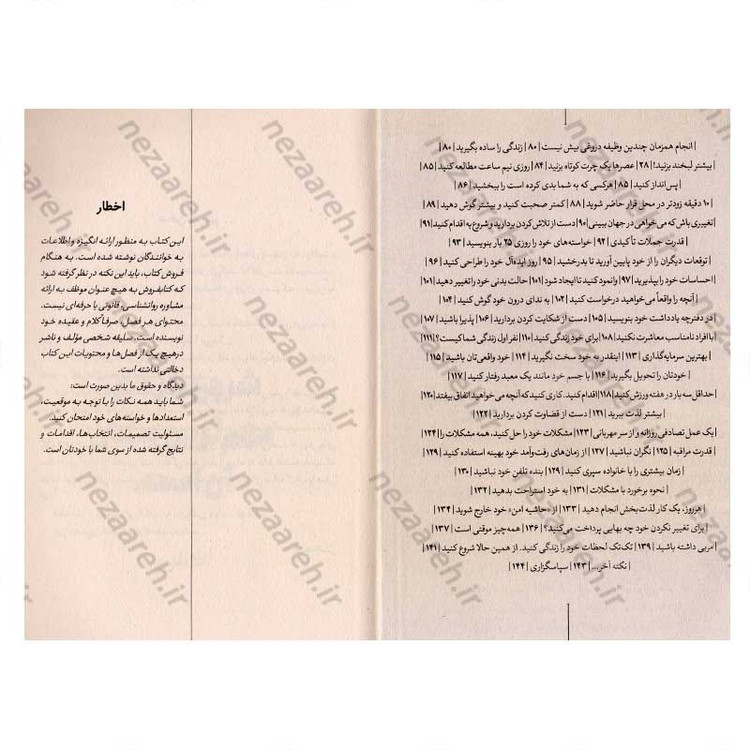 | انجام همزمان چندین وظیفه دروغی بیش نیست | ۸۰ | زندگی را ساده بگیرید | ۸۰ |
| بیشتر لبخند بزنید! | ۲۸ | عصرها یک چرت کوتاه بزنید | ۸۴ | روزی نیم ساعت مطالعه کنید | ۸۵ |
| پس‌انداز کنید | ۸۵ | هرکسی که به شما بدی کرده است را ببخشید | ۸۶ |
| ۱۰ دقیقه زودتر در محل قرار حاضر شوید | ۸۸ | کمتر صحبت کنید و بیشتر گوش دهید | ۸۹ |
| تغییری باش که می‌خواهی در جهان ببینی | ۹۰ | دست از تلاش کردن بردارید و شروع به اقدام کنید | ۹۱ |
| قدرت جملات تأکیدی | ۹۲ | خواسته‌های خود را روزی ۲۵ بار بنویسید | ۹۳ |
| توقعات دیگران را از خود پایین آورید تا بدرخشید | ۹۵ | روز ایده‌آل خود را طراحی کنید | ۹۶ |
| احساسات خود را بپذیرید | ۹۷ | وانمود کنید تا ایجاد شود | ۱۰۱ | حالت بدنی خود را تغییر دهید | ۱۰۱ |
| آنچه را واقعاً می‌خواهید درخواست کنید | ۱۰۲ | به ندای درون خود گوش کنید | ۱۰۴ |
| در دفترچه یادداشت خود بنویسید | ۱۰۵ | دست از شکایت کردن بردارید | ۱۰۶ | پذیرا باشید | ۱۰۷ |
| با افراد نامناسب معاشرت نکنید | ۱۰۸ | برای خود زندگی کنید | ۱۱۰ | نفر اول زندگی شما کیست؟ | ۱۱۱ |
| بهترین سرمایه‌گذاری | ۱۱۳ | اینقدر به خود سخت نگیرید | ۱۱۴ | خود واقعی‌تان باشید | ۱۱۵ |
| خودتان را تحویل بگیرید | ۱۱۶ | با جسم خود مانند یک معبد رفتار کنید | ۱۱۷ |
| حداقل سه بار در هفته ورزش کنید | ۱۱۸ | اقدام کنید. کاری کنید که آنچه می‌خواهید اتفاق بیفتد | ۱۲۰ |
| بیشتر لذت ببرید | ۱۲۱ | دست از قضاوت کردن بردارید | ۱۲۲ |
| یک عمل تصادفی روزانه و از سر مهربانی | ۱۲۳ | مشکلات خود را حل کنید، همه مشکلات را | ۱۲۴ |
| قدرت مراقبه | ۱۲۵ | نگران نباشید | ۱۲۷ | از زمان‌های رفت‌وآمد خود بهینه استفاده کنید | ۱۲۹ |
| زمان بیشتری را با خانواده سپری کنید | ۱۲۹ | بنده تلفن خود نباشید | ۱۳۰ |
| نحوه برخورد با مشکلات | ۱۳۱ | به خود استراحت بدهید | ۱۳۲ |
| هرروز، یک کار لذت‌بخش انجام دهید | ۱۳۳ | از «حاشیه امن» خود خارج شوید | ۱۳۴ |
| برای تغییر نکردن خود چه بهایی پرداخت می‌کنید؟ | ۱۳۶ | همه‌چیز موقتی است | ۱۳۷ |
| مربی داشته باشید | ۱۳۹ | تک‌تک لحظات خود را زندگی کنید. از همین حالا شروع کنید | ۱۴۱ |
| نکته آخر... | ۱۴۳ | سپاسگزاری | ۱۴۴ |
اخطار
این کتاب به منظور ارائه انگیزه و اطلاعات
به خوانندگان نوشته شده است. به هنگام
فروش کتاب، باید این نکته در نظر گرفته شود
که کتابفروش به هیچ عنوان موظف به ارائه
مشاوره روانشناسی، قانونی یا حرفه‌ای نیست.
محتوای هر فصل، صرفاً کلام و عقیده خود
نویسنده است. سلیقه شخصی مؤلف و ناشر
در هیچ یک از فصل‌ها و محتویات این کتاب
دخالتی نداشته است.
دیدگاه و حقوق ما بدین صورت است:
شما باید همه نکات را با توجه به موقعیت،
استعدادها و خواسته‌های خود امتحان کنید.
مسئولیت تصمیمات، انتخاب‌ها، اقدامات و
نتایج گرفته شده از سوی شما با خودتان است.
nezaareh.ir